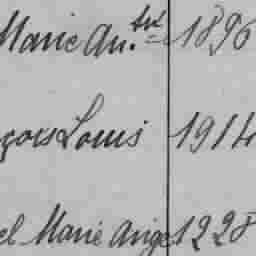 Marie An.tst 1896
çois Louis 1914
el Marie Ange 1228